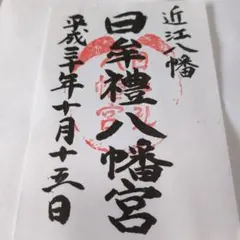 近江八幡
日牟禮八幡宮
平成三十年十月十三日